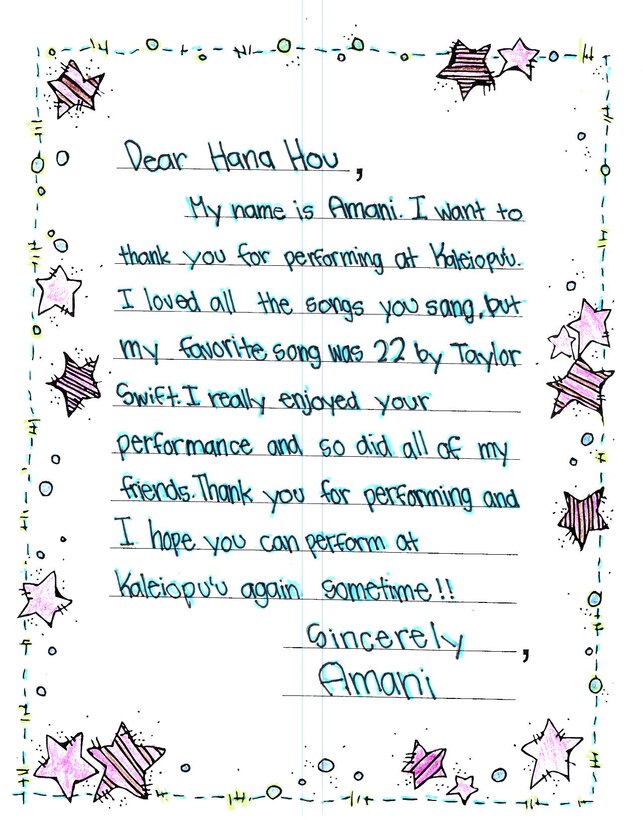 Dear Hana Hou,
My name is Amani. I want to
thank you for performing at Kaleiopu'u.
I loved all the songs you sang, but
my favorite song was 22 by Taylor
Swift. I really enjoyed your
performance and so did all of my
friends. Thank you for performing and
I hope you can perform at
Kaleiopu'u again sometime!!
Sincerely,
Amani